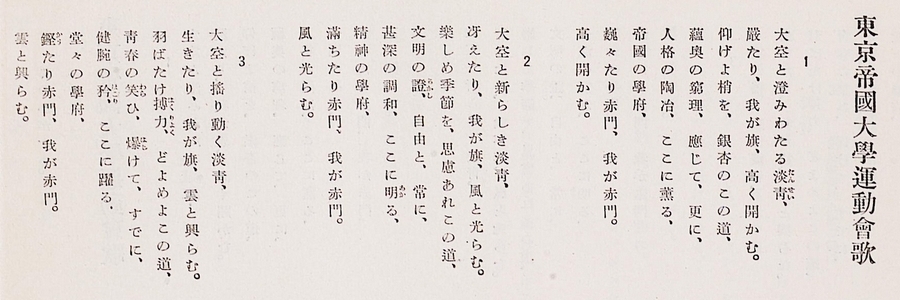 東京帝國大學運動會歌
1
大空と澄みわたる淡靑、
嚴たり、我が旗、高く開かむ。
仰げよ梢を、銀杏のこの道、
蘊奧の窮理、應じて、更に、
人格の陶冶、ここに薰る、
帝國の學府、
巍々たり赤門、我が赤門。
高く開かむ。
2
大空と新らしき淡靑、
冴えたり、我が旗、風と光らむ。
樂しめ季節を、思慮あれこの道、
文明の證、自由と、常に、
甚深の調和、ここに明る、
精神の學府、
滿ちたり赤門、我が赤門。
風と光らむ。
3
大空と搖り動く淡靑、
生きたり、我が旗、雲と興らむ。
羽ばたけ搏力、どよめよこの道、
靑春の笑ひ、爆けて、すでに、
健腕の矜、ここに躍る、
堂々の學府、
鏗たり赤門、我が赤門。
雲と興らむ。